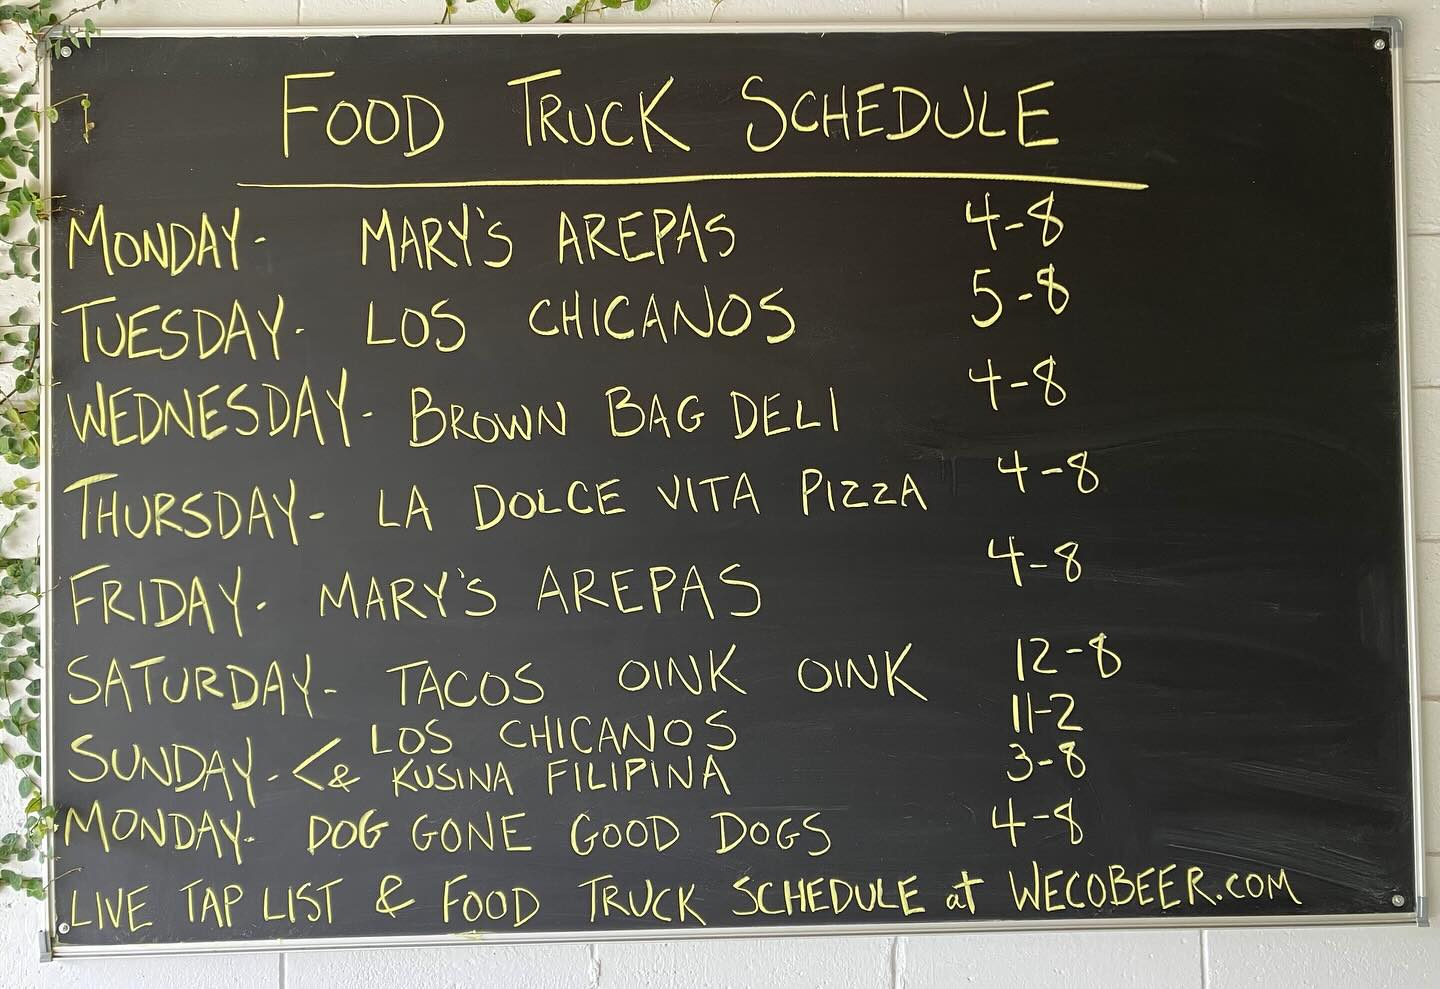 FOOD TRUCK SCHEDULE
MONDAY- MARY'S AREPAS 4-8
TUESDAY- LOS CHICANOS 5-8
WEDNESDAY- BROWN BAG DELI 4-8
THURSDAY- LA DOLCE VITA PIZZA 4-8
FRIDAY- MARY'S AREPAS 4-8
SATURDAY- TACOS OINK OINK 12-8
SUNDAY- < LOS CHICANOS 11-2
& KUSINA FILIPINA 3-8
MONDAY- DOG GONE GOOD DOGS 4-8
LIVE TAP LIST & FOOD TRUCK SCHEDULE at WECOBEER.COM